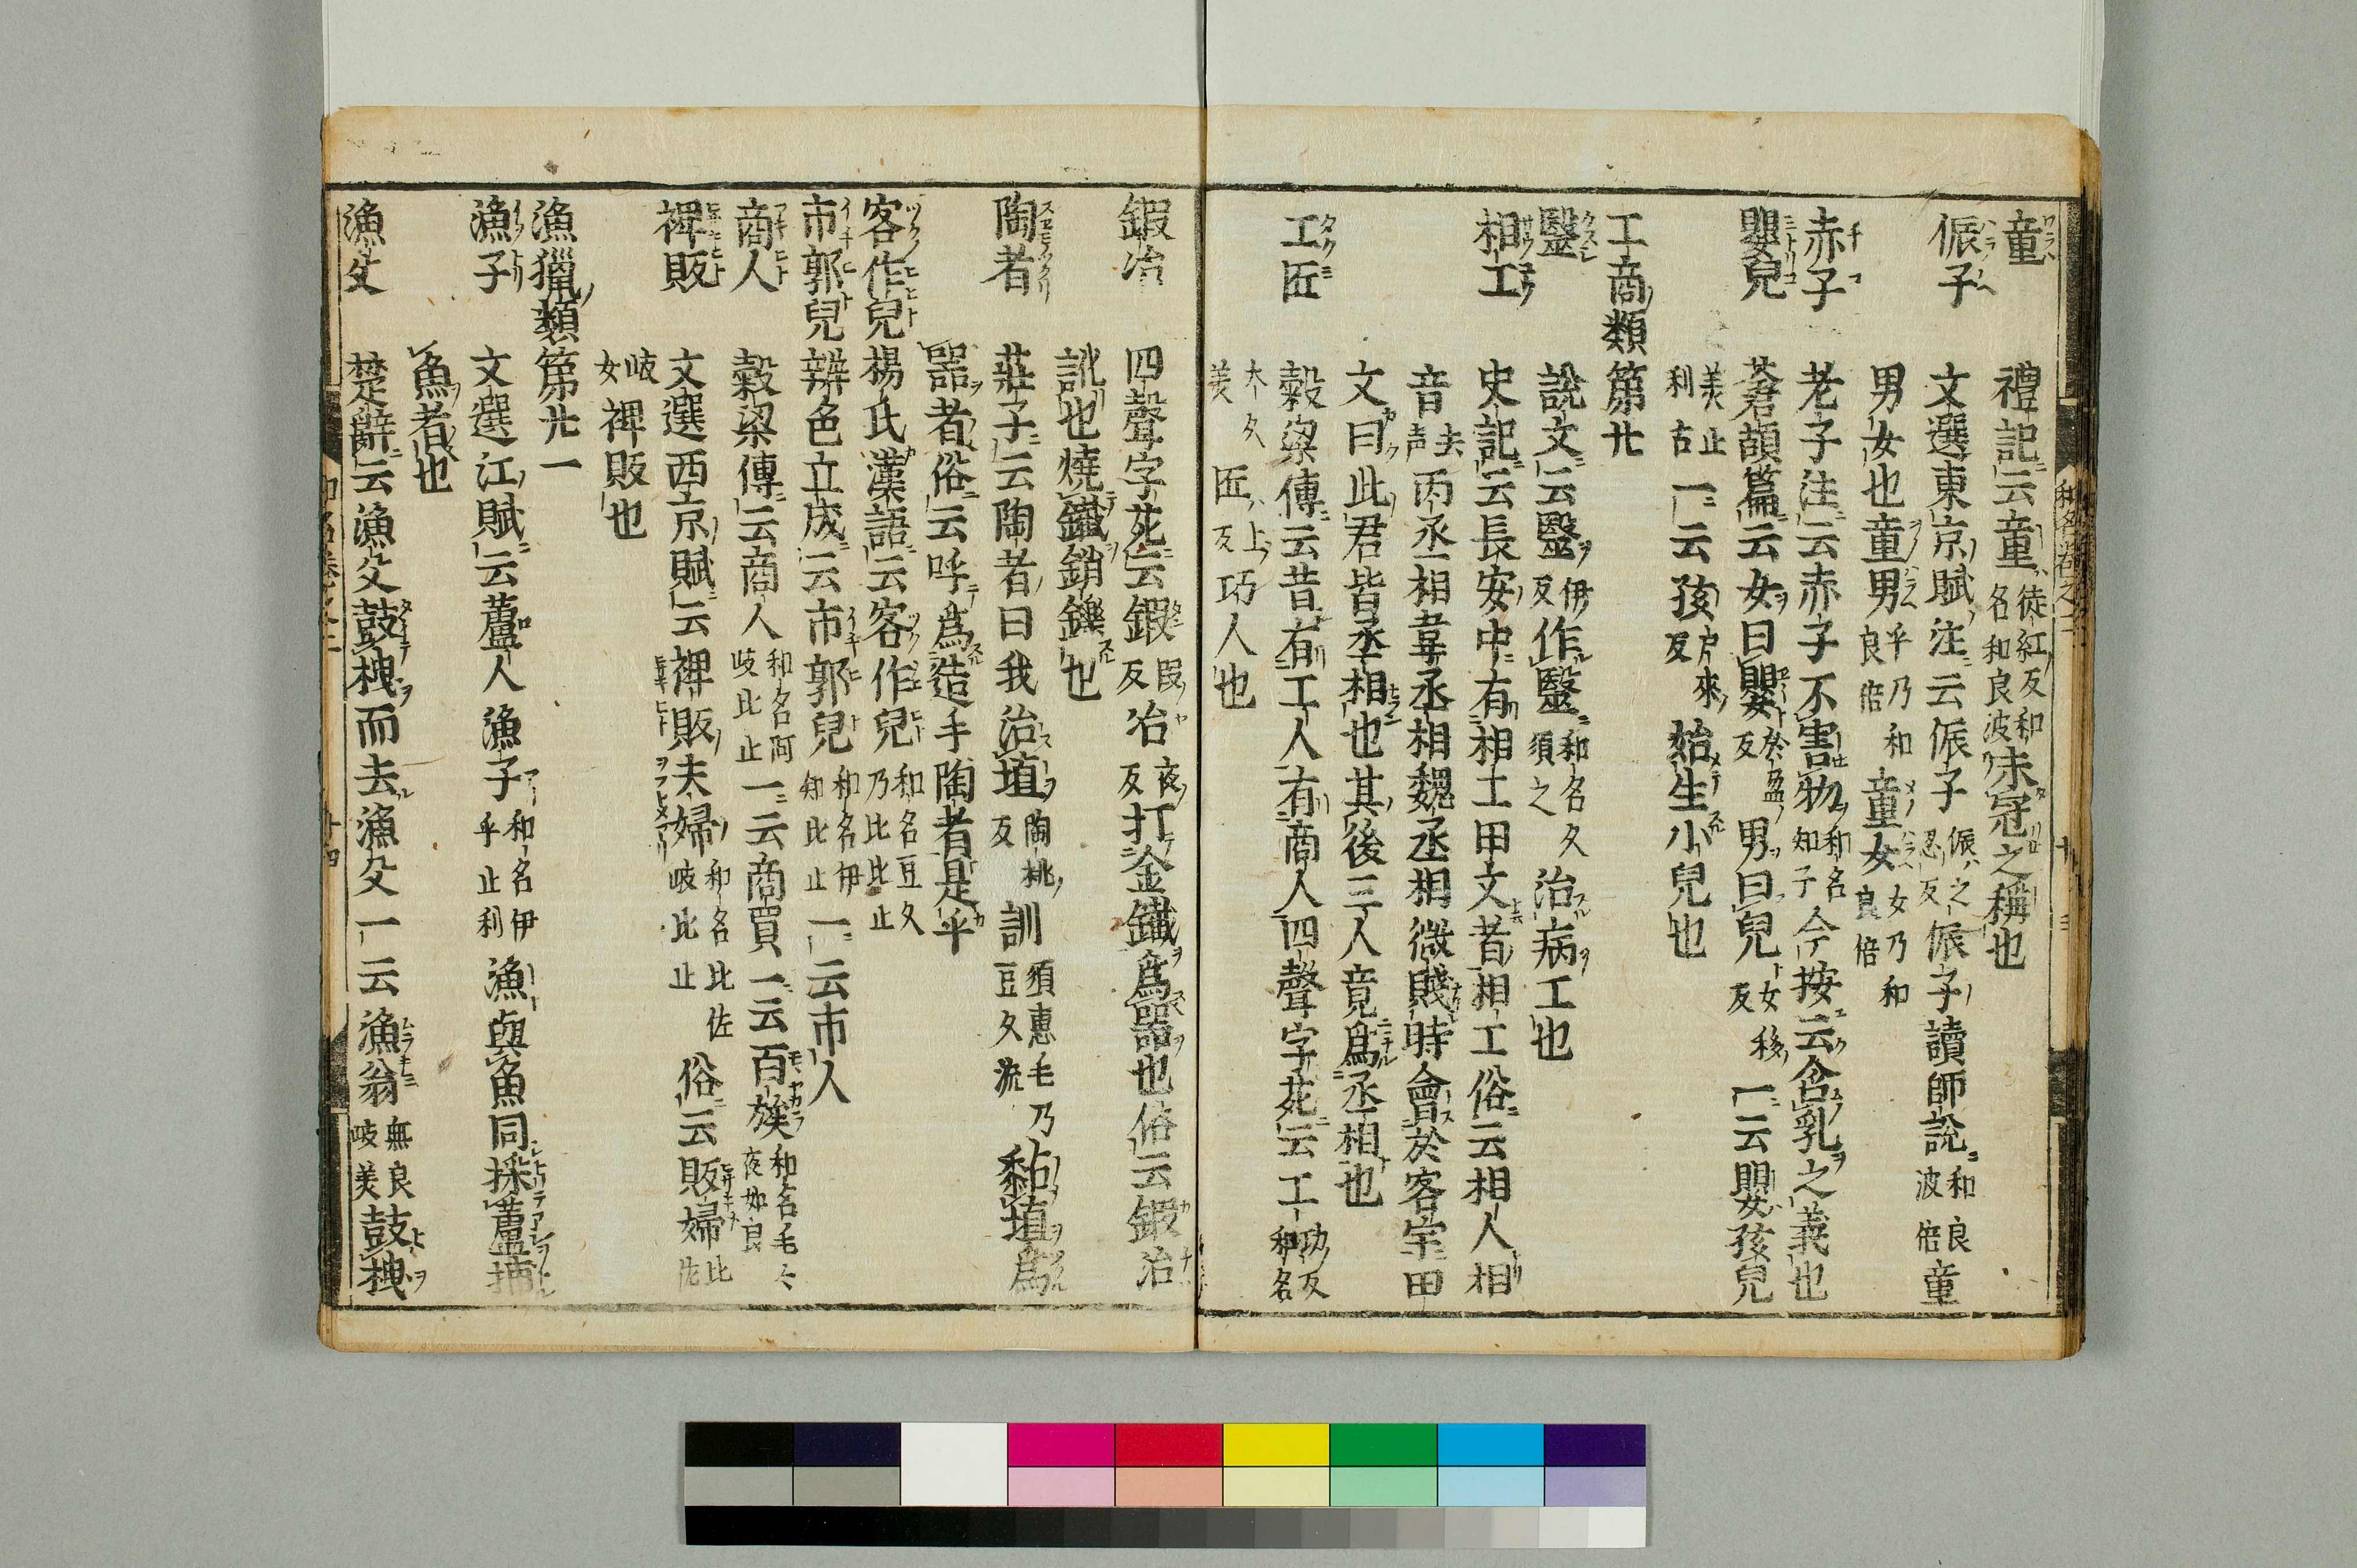 童 禮記云童徒紅反和名和良波未冠之稱也
侲子 文選東京賦注云侲子侲之忍反侲子讀師說和良波倍童
男女也童男乎乃和良倍童女女乃和良倍
赤子 老子注云赤子不害物和名知子今按云含乳之義也
嬰兒 蒼頡篇云女曰嬰於盈反男曰兒女移反一云嬰孩兒
美止利古一云孩户來反始生小兒也
工商類第廿
醫 說文云醫伊反作毉和名久須之治病工也
相工 史記云長安中有相工田文者相工俗云相人相
音去声丙丞相韋丞相魏丞相微賤時會於客家田
文曰此君皆丞相也其後三人竟爲丞相也
工匠 穀梁傳云昔有工人有商人四聲字苑云工功反和名
太久美匠上反巧人也
鍛冶 四聲字苑云鍛反冶夜反打金鐵爲器也俗云鍛冶
訛也燒鐵銷鑠也
陶者 莊子云陶者曰我治埴陶桃反訓須惠毛乃豆久流黏埴爲
器者俗云呼爲造手陶者是乎
客作兒 楊氏漢語云客作兒和名豆久乃比比止
市郭兒 辨色立成云市郭兒和名伊知比止一云市人
商人 穀梁傳云商人和名阿岐比止一云商賈一云百族和名毛々夜加良
裨販 文選西京賦云裨販夫婦和名比佐岐比止俗云販婦比佐
岐女裨販也
漁獵類第廿一
漁子 文選江賦云蘆人漁子和名伊乎止利漁與魚同採蘆捕
魚者也
漁父 楚辭云漁父鼓枻而去漁父一云漁翁無良岐美鼓枻